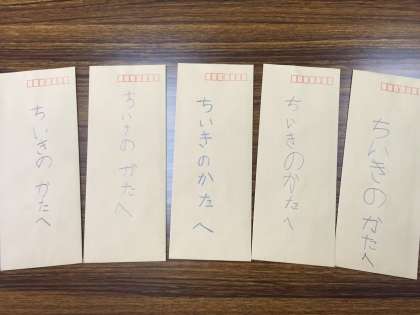 ちいきの かたへ
ちいきの かたへ
ちいきのかたへ
ちいきのかたへ
ちいきの かたへ